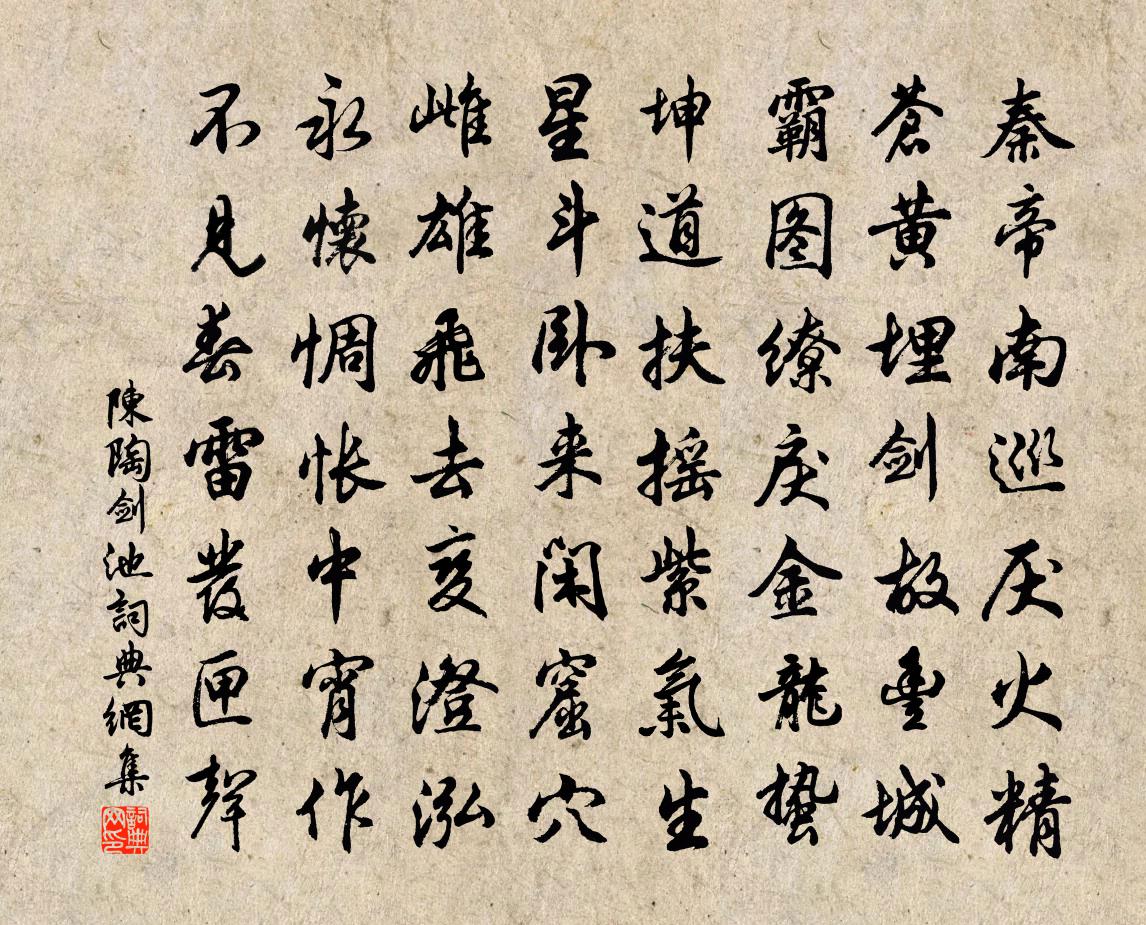 秦帝南巡厌火精
苍黄埋剑故豊城
霸图缭戾金龍蛰
坤道扶摇紫氣生
星斗卧来闲窟穴
雌雄飛去变澄泓
永懷惆怅中宵作
不見春雷發匣聲
陳陶剑池詞典網集
詞典网印